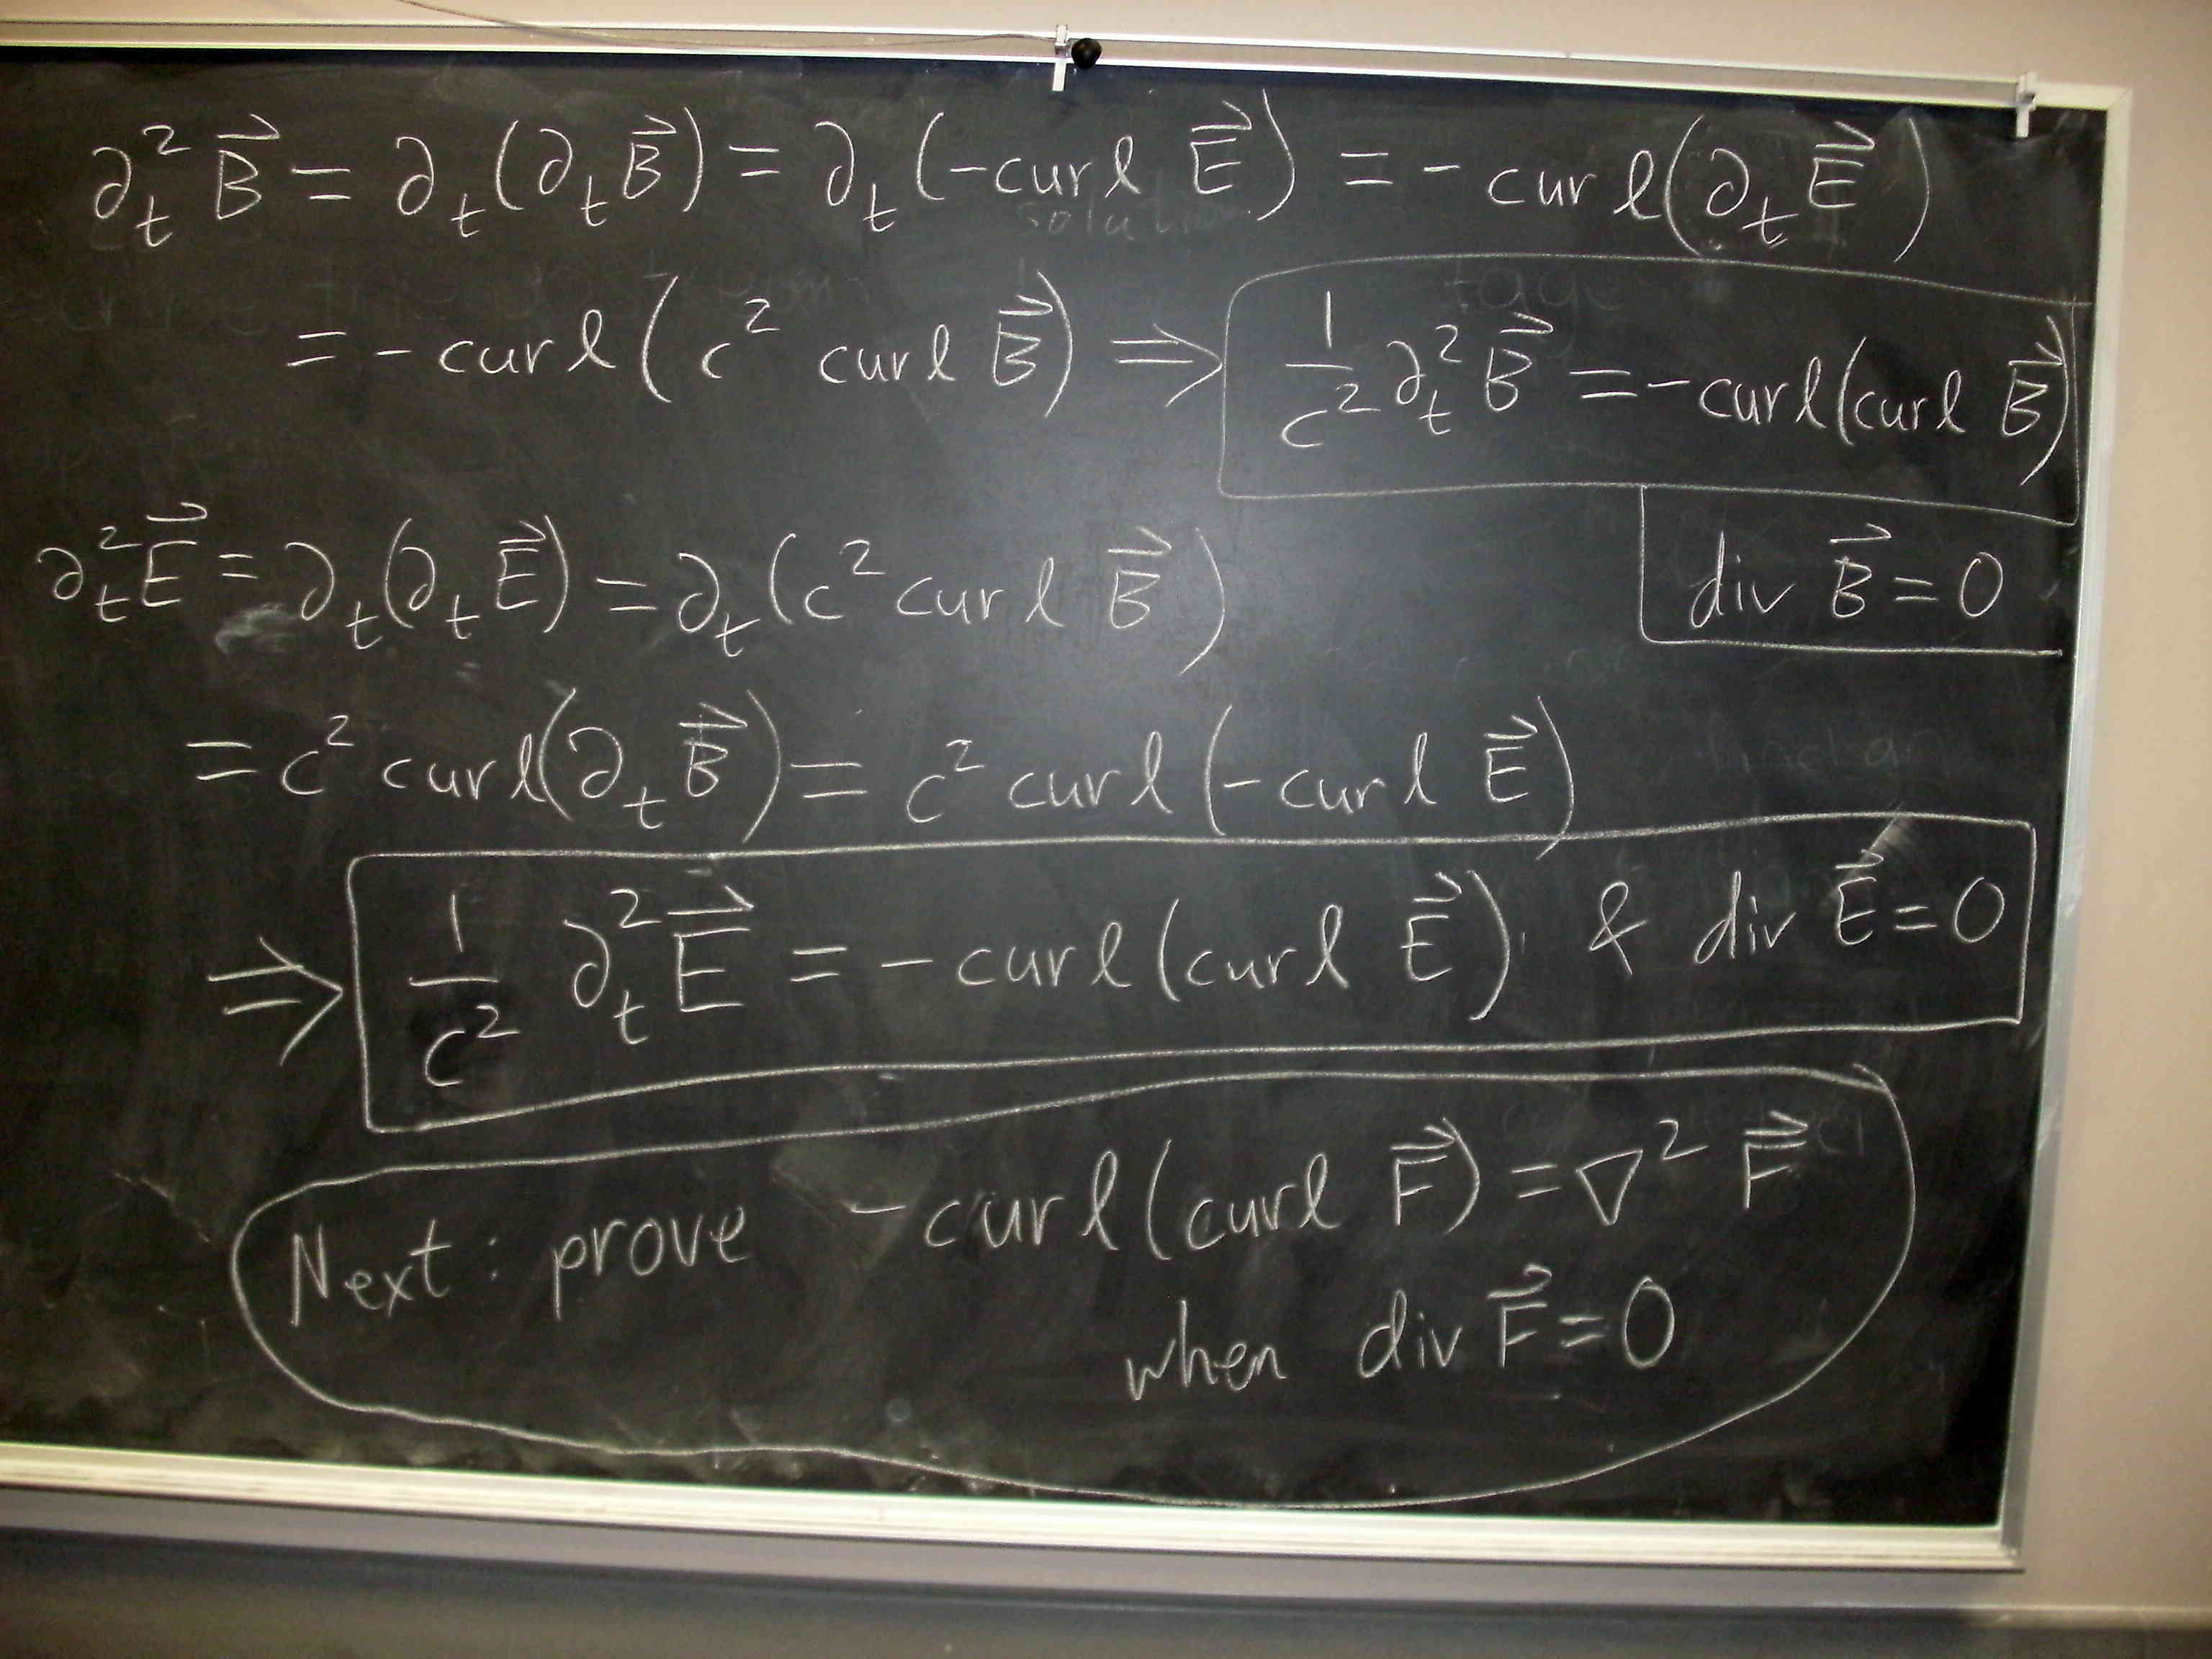 ∂ₜ² B⃗ = ∂ₜ(∂ₜB⃗) = ∂ₜ(-curl E⃗) = - curl(∂ₜE⃗)
= - curl(c² curl B⃗) ⇒ 1/c² ∂ₜ² B⃗ = -curl(curl B⃗)
div B⃗ = 0
∂ₜ² E⃗ = ∂ₜ(∂ₜE⃗) = ∂ₜ(c² curl B⃗)
= c² curl(∂ₜ B⃗) = c² curl(-curl E⃗)
⇒ 1/c² ∂ₜ² E⃗ = - curl(curl E⃗) & div E⃗ = 0
Next: prove -curl(curl F⃗) = ∇² F⃗
when div F⃗ = 0